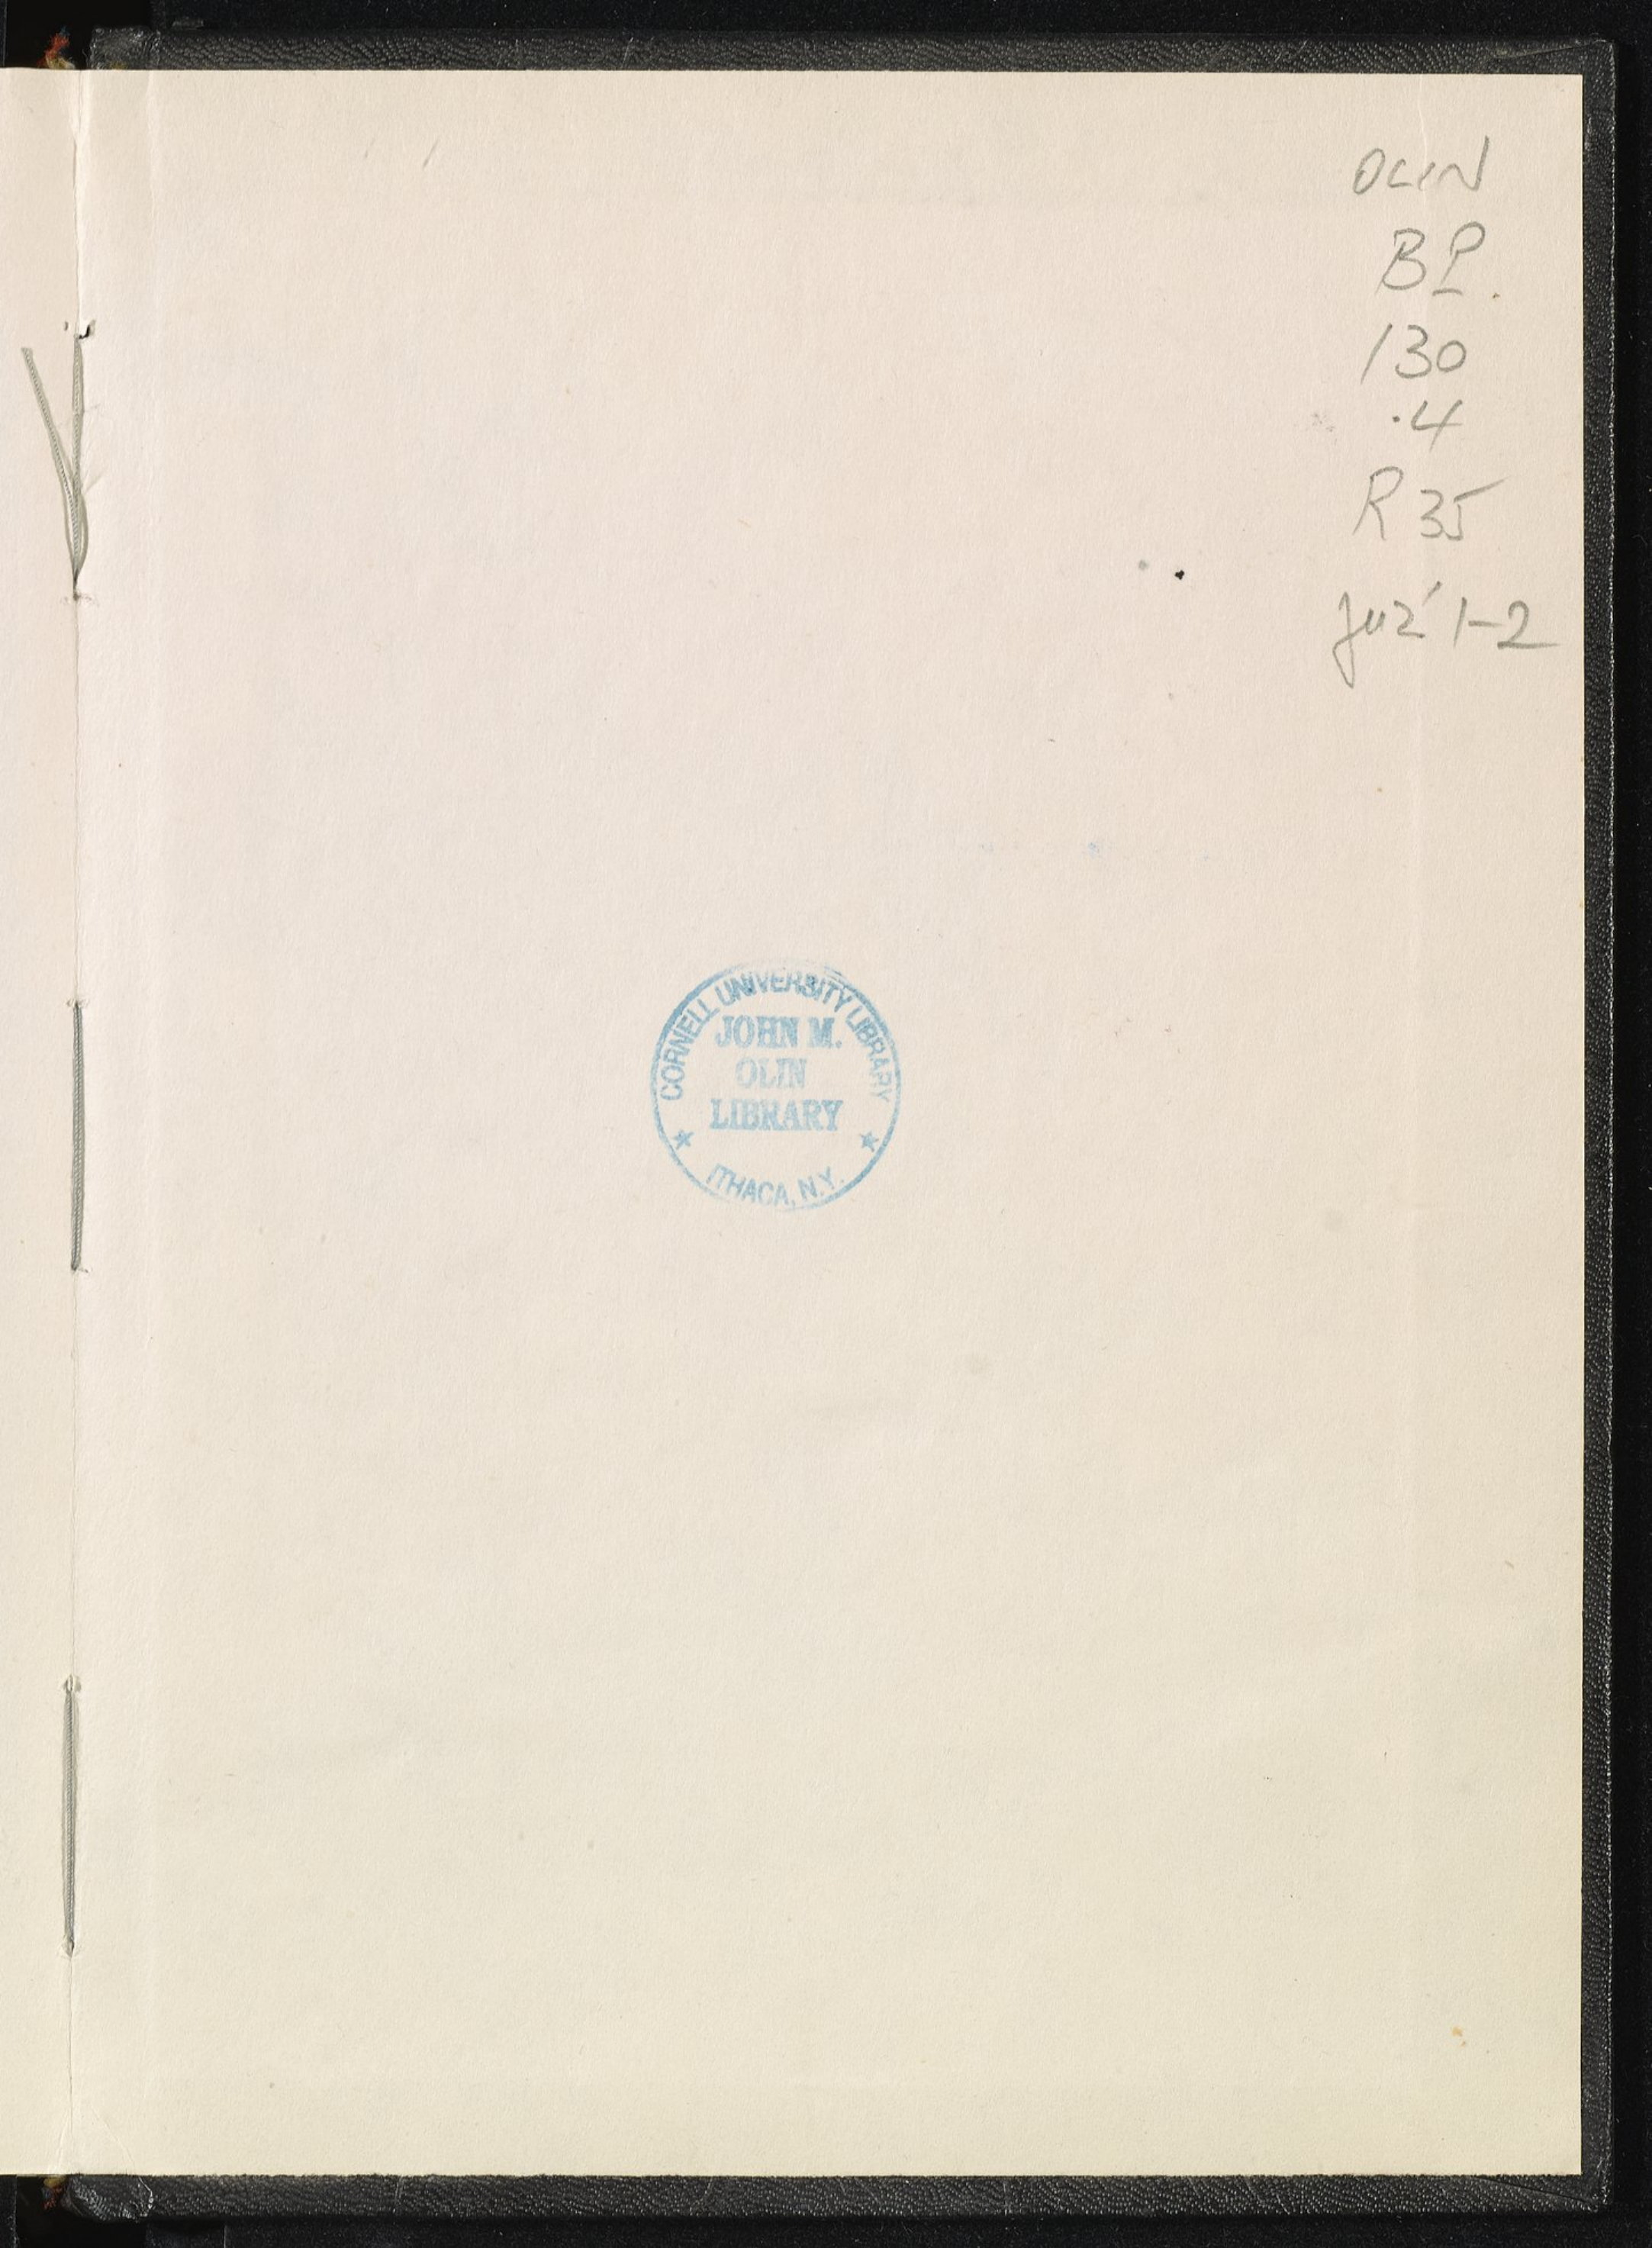 OLIN
BP
130
.4
R35
juz' 1-2
CORNELL UNIVERSITY LIBRARY
JOHN M.
OLIN
LIBRARY
ITHACA, N.Y.